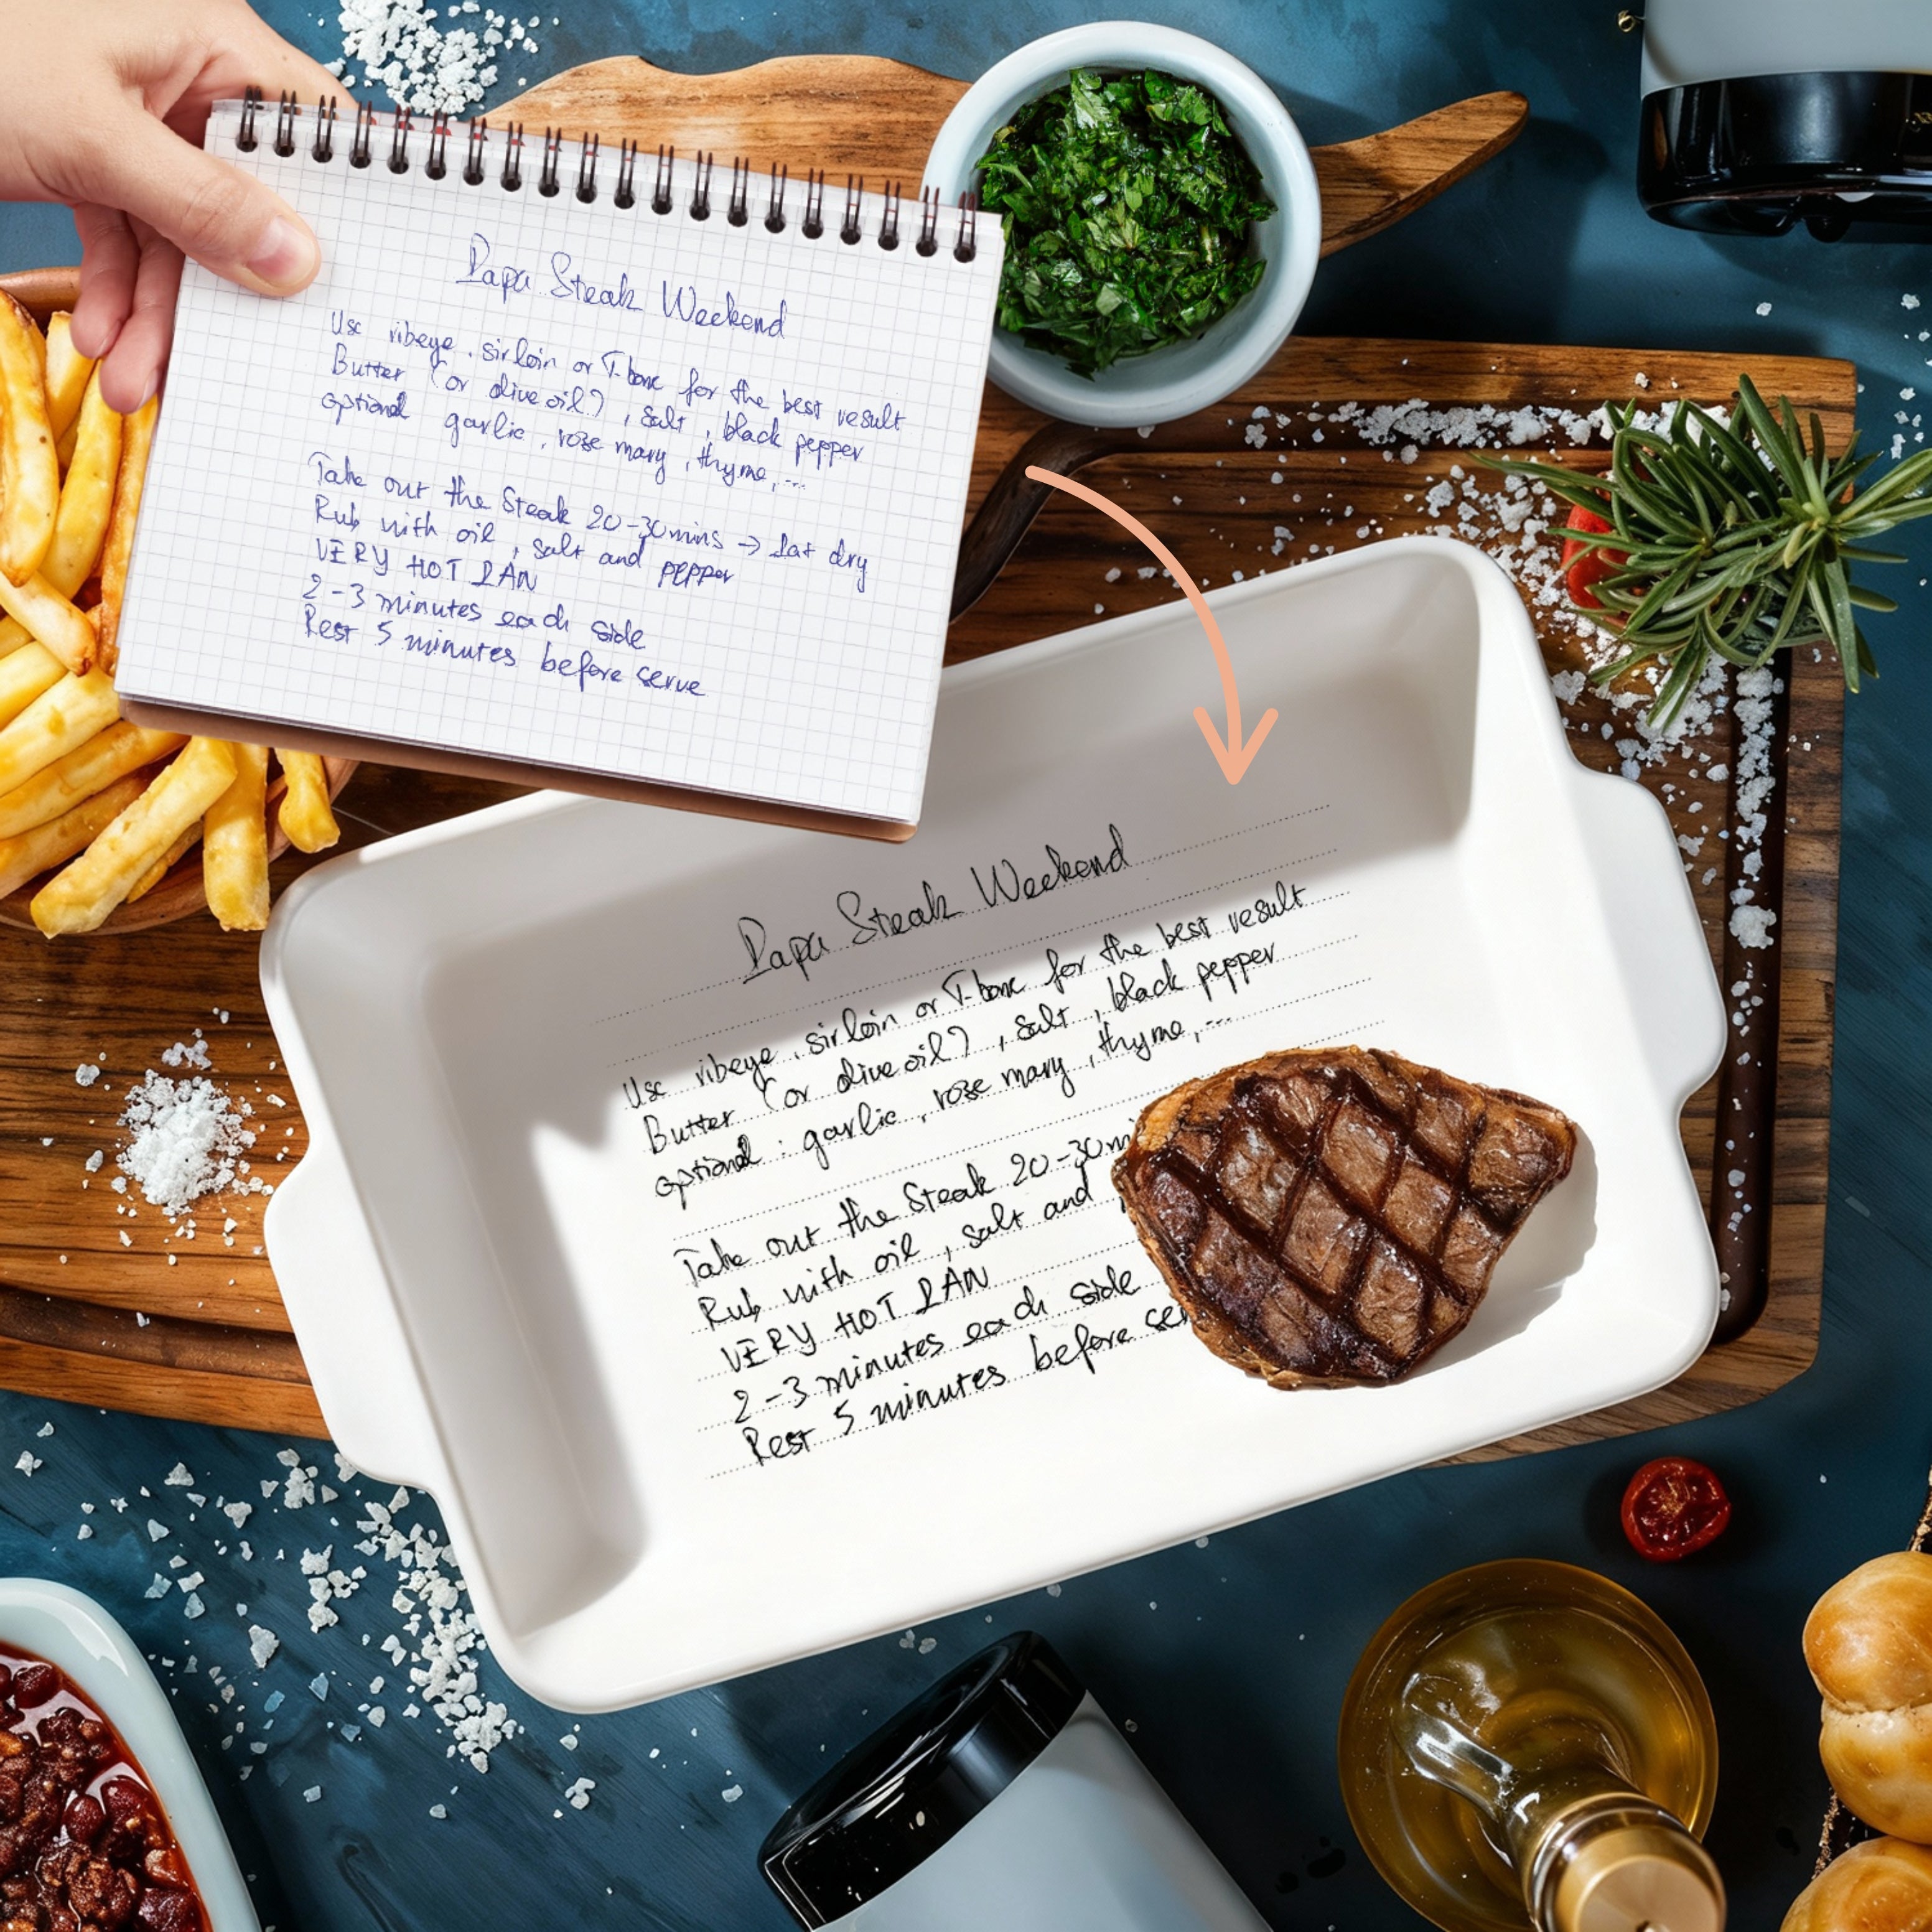 Papa Steak Weekend
Use ribeye, sirloin or T-bone for the best result
Butter (or olive oil), salt, black pepper
optional garlic, rosemary, thyme,...
Take out the Steak 20-30mins → Pat dry
Rub with oil, salt and pepper
VERY HOT PAN
2-3 minutes each side
Rest 5 minutes before serve
Papa Steak Weekend
Use ribeye, sirloin or T-bone for the best result
Butter (or olive oil), salt, black pepper
optional : garlic, rosemary, thyme,...
Take out the Steak 20-30m
Rub with oil, salt and
VERY HOT PAN
2-3 minutes each side
Rest 5 minutes before ser